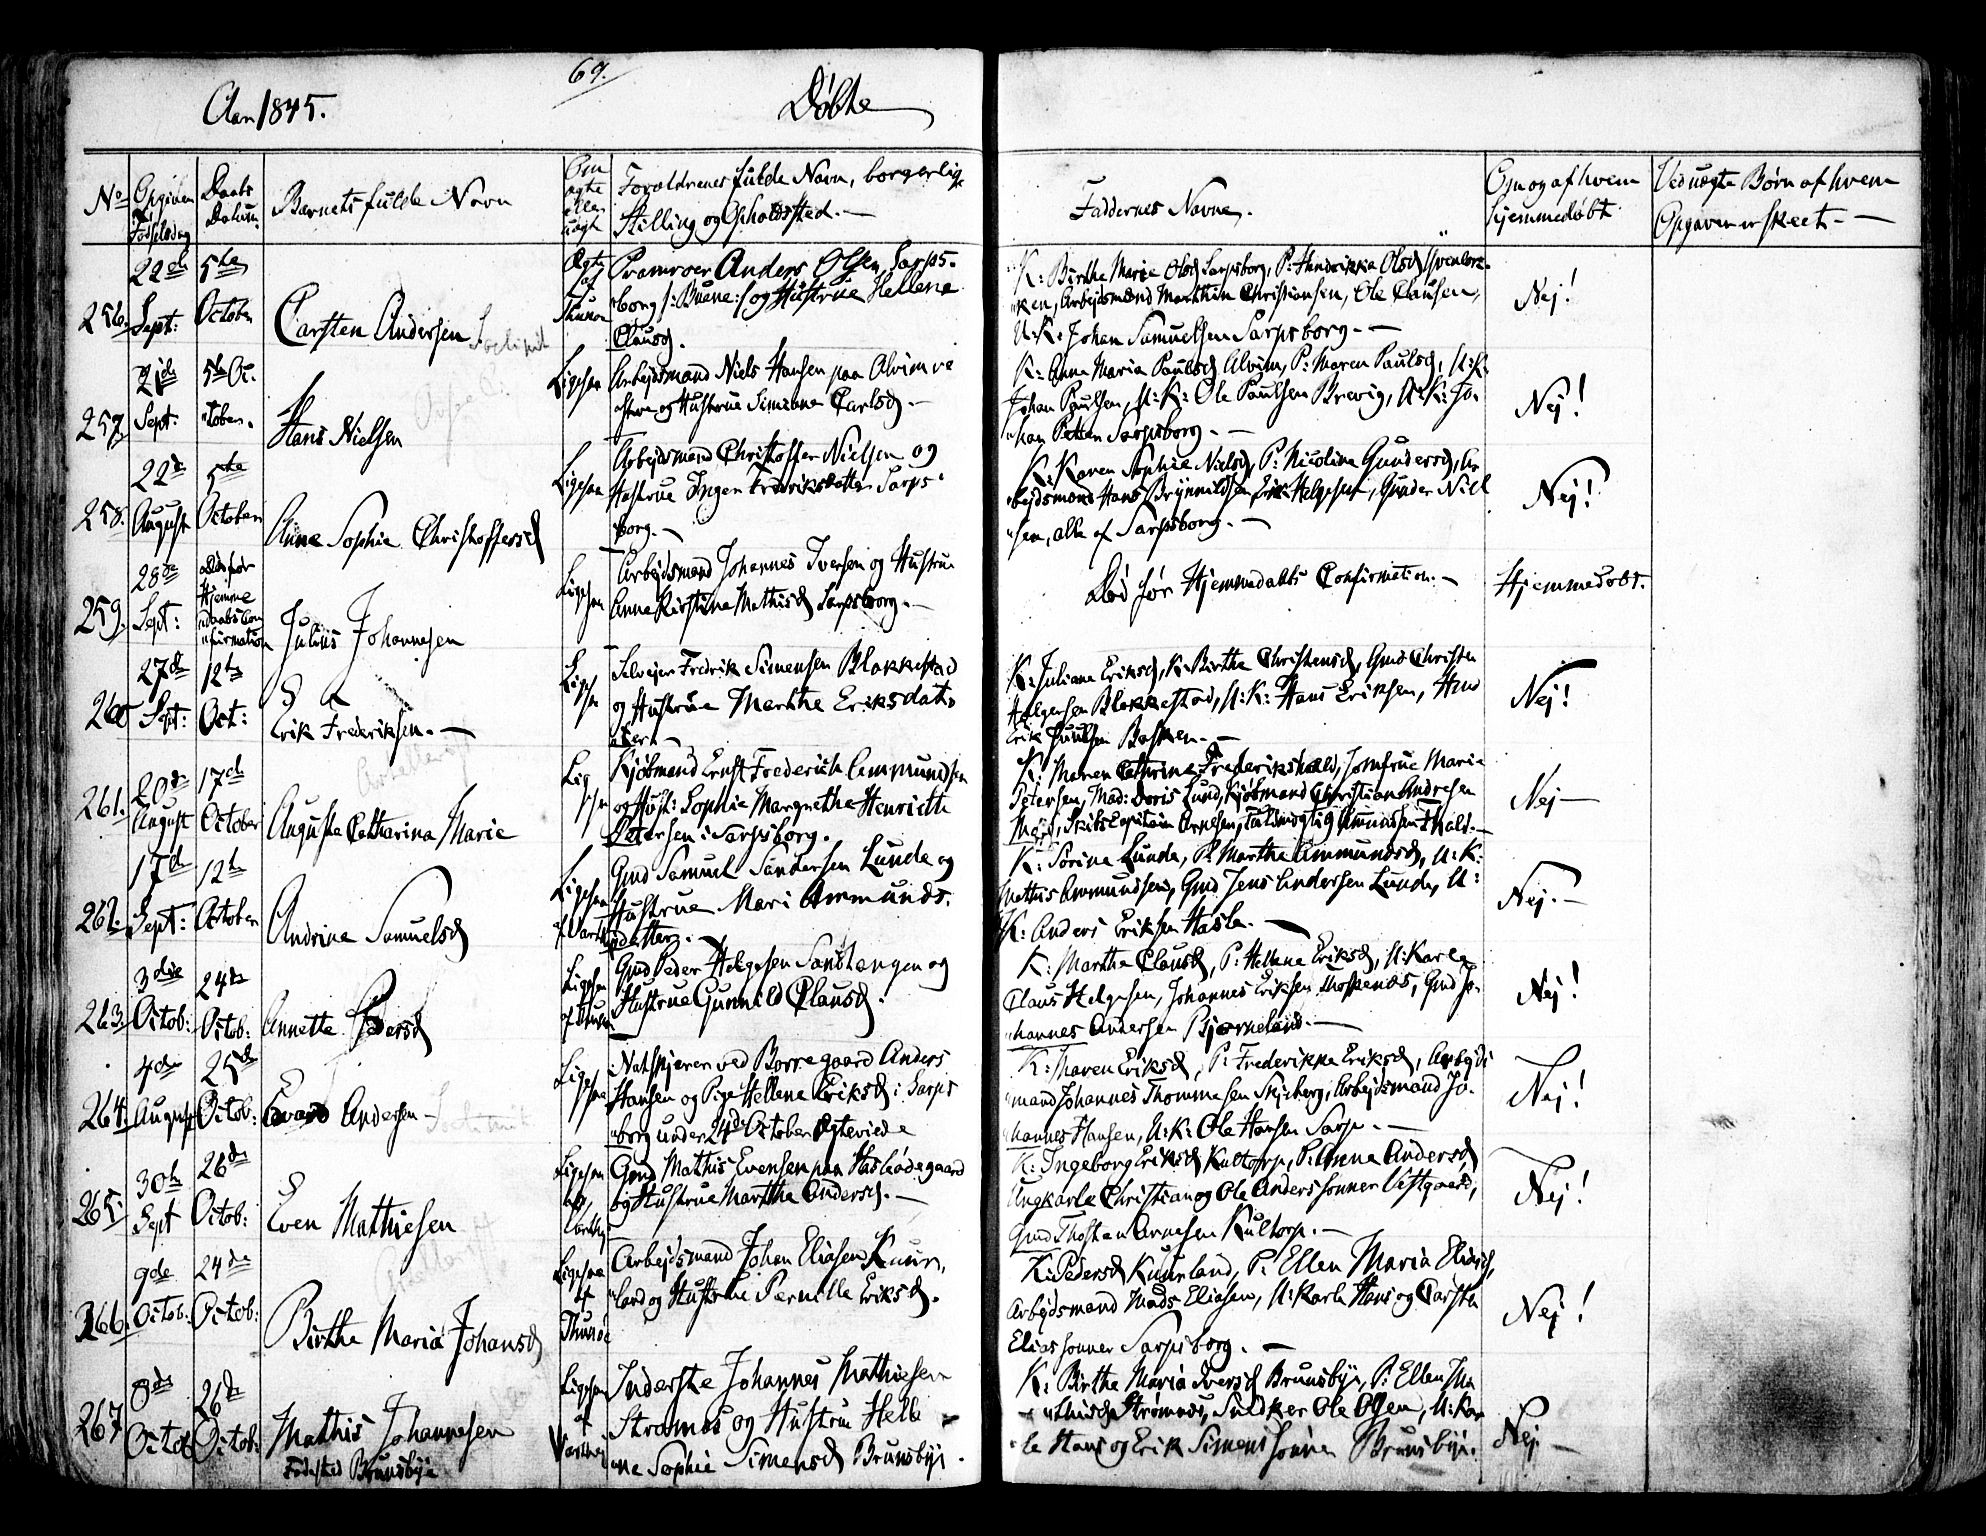 69.
Aar 1845.
Døbte
No
Opgiven Fødselsdag
Daabs Datum.
Barnets fulde Navn
Om ægte eller uægte
Forældrenes fulde Navn, borgerlige
Stilling og Opholdssted. —
Faddernes Navne.
Om og af hvem
hjemmedøbt
Ved uægte Børn af hvem
Opgaven er skeet. —
256. 22de Sept: 5te October
Carsten Andersen
Ægte af Thunøe
Pramroer Anders Olsen, Sarps-
borg /: Buene :/ og Hustrue Hellene
Clausd.
K: Birthe Marie Olsd Sarpsborg, P: Hendrikka Olsd
ken, Arbejdsmænd Marthin Christiansen, Ole Clausen,
U:K: Johan Samuelsen Sarpsborg. —
Nej!
257. 21de Sept: 5te Oc- tober.
Hans Nielsen
Ligesaa
Arbejdsmand Niels Hansen paa Alvim ve
stre og Hustrue Simione Carlsd. —
K: Anne Maria Paulsd Alvim, P: Maren Paulsd, U:K:
Johan Paulsen, U:K: Ole Paulsen Brevig, U:K: Jo-
han Petter Sarpsborg. —
Nej!
258. 22de August 5te October
Anne Sophie Christoffersd
Ligesaa
Arbejdsmand Christoffer Nielsen og
Hustrue Inger Fredriksdatter Sarps-
borg. —
K: Karen Sophie Nielsd, P: Nicoline Gundersd, Ar
bejdsmænd Hans Brynnildsen Erik Helgesen, Gunder Niel
sen, alle af Sarpsborg. —
Nej!
259. 28de Sept: døde før Hjemme daabs Con firmation
Julius Johannesen
Ligesaa
Arbejdsmand Johannes Iversen og Hustrue
Anne Kirstine Mathisd Sarpsborg. —
Død før Hjemmedaabs Confirmation. —
Hjemmedøbt.
260 27de Sept: 12te Oct:
Erik Frederiksen. —
Ligesaa
Selvejer Fredrik Simensen Blakkestad
og Hustrue Marthe Eriksdat-
ter. —
K: Juliane Eriksd, K: Birthe Christensd, Gmd Christen
Helgesen Blakkestad, U:K: Hans Eriksen, Gmd
Erik Paulsen Bakken. —
Nej!
261. 20de August 17de October
Augusta Catharina Marie
Ligesaa
Kjøbmand Ernst Frederich Ammundsen
og Hust: Sophie Margrethe Henriette
Petersen i Sarpsborg.
K: Maren Cathrine Frederikshald, Jomfrue Marie
Petersen, Mad: Doris Lund, Kjøbmand Christian Andresen
Nej —
262. 17de Sept: 12te October
Andrine Samuelsd
Ligesaa
Gmd Samuel Sandersen Lunde og
Hustrue Mari Ammunds-
datter. —
K: Sørine Lunde, P: Marthe Ammundsd, U:K:
Mathis Ammundsen, Gmd Jens Andersen Lunde, U:
K: Anders Eriksen Hasle. —
Nej. —
263. 3die Octob: 24de Octob:
Annette Pedersd
Ligesaa af Thunøe
Gmd Peder Helgesen Sandtangen og
Hustrue Gunnild Clausd.
K: Marthe Clausd, P: Hellene Eriksd, U:Karle
Claus Helgesen, Johannes Eriksen, Gmd Jo-
hannes Andersen Bjørneland. —
Nej!
264. 4de August 25de Octob:
Edvard Andersen
Ligesaa
Natskjærer ved Borregaard Anders
Hansen og Pige Hellene Eriksd i Sarps
borg under 24de October Ægteviede
K: Maren Eriksd, P: Frederikke Eriksd, Arbejds
mand Johannes Thommesen Skjeberg, Arbejdsmand Jo-
hannes Hansen, U:K: Ole Hansen Sarp. —
Nej!
265. 30te Sept 26de Octob:
Even Mathiesen
Ligesaa
Gmd Mathis Evensen paa Haslødegaard
og Hustrue Marthe Andersd. —
K: Ingeborg Eriksd Kultorp, P: Anna Andersd
Ungkarle Christian og Ole Anders sønner Vestgaard,
Gmd Thosten Arnesen Kultorp. —
Nej!
266. 9de Octob: 24de Octob:
Birthe Maria Johansd
Ligesaa af Thunøe
Arbejdsmand Johan Eliasen Kuur-
land og Hustrue Pernille Eriksd.
K: Pedersd Kuurland, P: Ellen Maria Eliasd,
Arbejdsmand Mads Eliasen, U:Karle Hans og Carsten
Elias sønner Sarpsborg. —
Nej!
267 8de Octob 26de Octob:
Mathis Johannesen
Fødested Brunsbye
Ligesaa af
Inderste Johannes Mathiesen
Strømnes og Hustrue Helle
ne Sophie Simensd Brunsbye.
K: Birthe Maria Iversd Brunsbye, P: Ellen Ma
thisd Strømnes, Snidker Ole Olsen, U:Kar
le Hans og Erik Simens sønner Brunsbye.
Nej. —